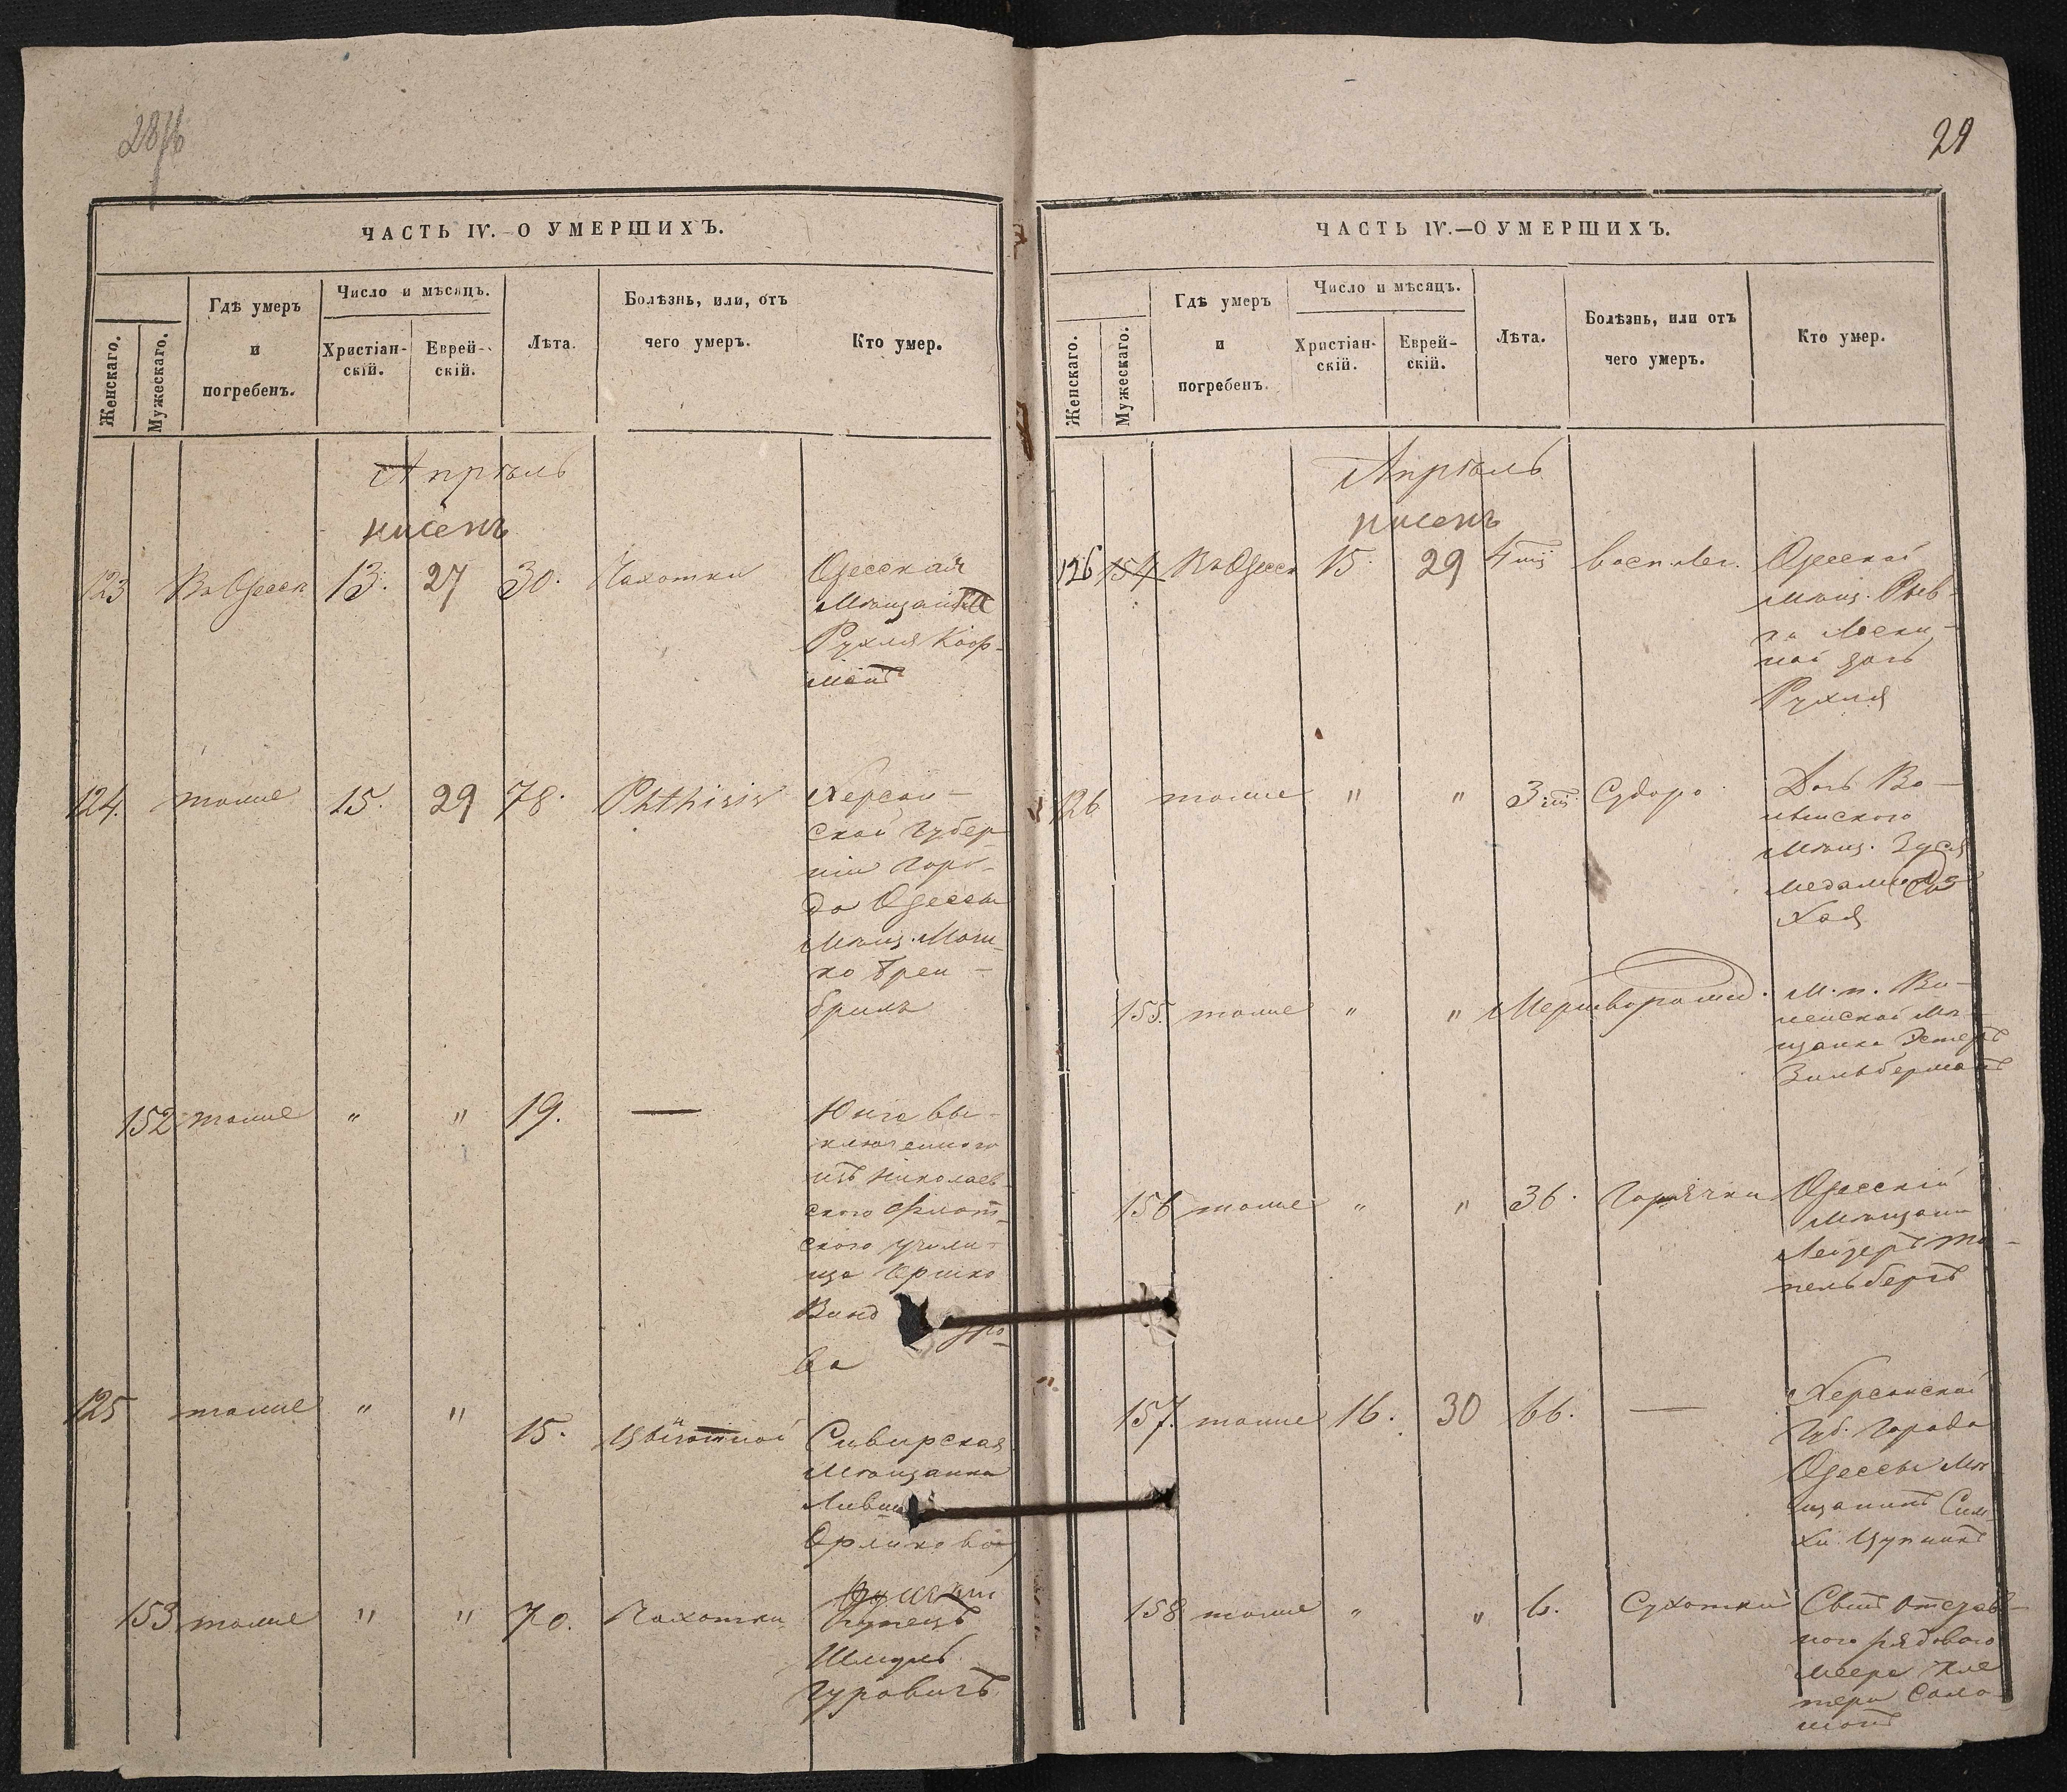 28/16
ЧАСТЬ IV.-О УМЕРШИХЪ.
Женскаго.
Мужескаго.
Гдѣ умеръ
и
погребенъ.
Число и мѣсяцъ.
Христіан-
скій.
Еврей-
скій.
Лѣта.
Болѣзнь, или, отъ
чего умеръ.
Кто умер.
Апрѣль
нисенъ
123 Въ Одессѣ 13. 27 30. Чахотки Одесская
Мѣщанка
Рухля Коф-
манъ
124. тоже 15. 29 78. Phthisis Херсон-
ской Губер
ніи Горо-
да Одессы
Мѣщ. Мош-
ко Трен-
брилъ
152 тоже " " 19. — Юнга вы-
ключеннаго
изъ Николаев-
ского Флот-
ского учили-
ща Ершко
Вино
ва
125 тоже " " 15. Сивирская
Мѣщанка
Орликова
153 тоже " " 70. Чахотки
Купецъ
Шмуль
Гуровичъ
29
ЧАСТЬ IV.—О УМЕРШИХЪ.
Женскаго.
Мужескаго.
Гдѣ умеръ
и
погребенъ.
Число и мѣсяцъ.
Христіан-
скій.
Еврей-
скій.
Лѣта.
Болѣзнь, или отъ
чего умеръ.
Кто умер.
Апрѣль
нисенъ
126 154 Въ Одессѣ 15. 29 4 воспален. Одесской
Мѣщ. Рыв-
ки
ной дочь
Рухля
126 тоже " " 3 Судоро. Дочь Во-
лынского
Мѣщ. Зуся
Хая
155. тоже " " Мертворожд. М. п. Ви-
ленской Мѣ-
щанки Эстеръ
Зильберманъ
156 тоже " " 36. Горячки Одесскій
Мѣщани
Лейзеръ Та-
пельбергъ
157. тоже 16. 30 66. — Херсонской
Губ. Города
Одессы Мѣ
щанинъ Сим-
ха Цупникъ
158 тоже " " 6. Сухотки Сынъ отстав-
ного рядового
Меера Кле
пера Соло-
монъ